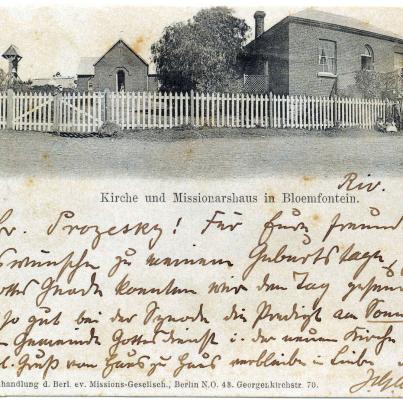 Kirche und Missionarshaus in Bloemfontein.
Riv.
Br. Prozesky! Für Eure freund
swünsche zu meinem Geburtstage
Gottes Gnade konnten wir den Tag
so gut bei der Synode die Predigt am Sonn
Gemeinde Gottesdienst i. der neuen Kirche
l. Gruß von Haus zu Haus verbleibe in Liebe
handlung d. Berl. ev. Missions-Gesellsch., Berlin N.O. 43. Georgenkirchstr. 70.